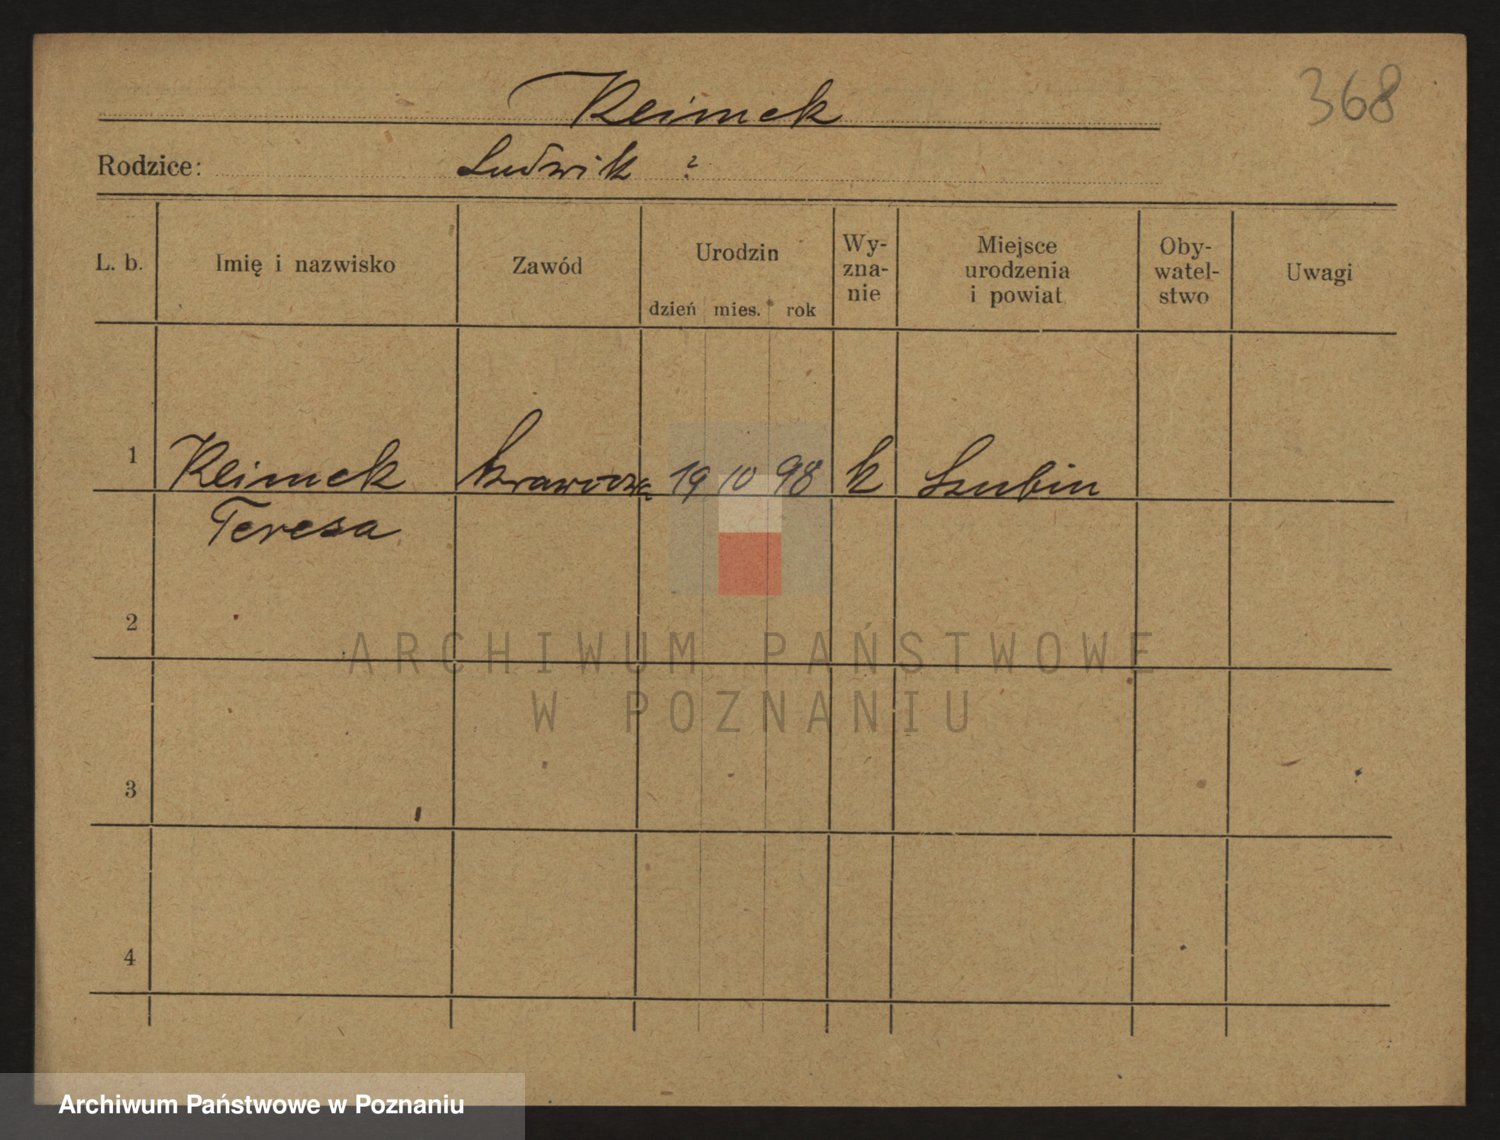 368
Kleimek
Rodzice: Ludwik ?
L. b. Imię i nazwisko Zawód Urodzin dzień mies. rok Wy-zna-nie Miejsce urodzenia i powiat Oby-watel-stwo Uwagi
1 Kleimek krawcowa 19 10 98 k Szubin
Teresa
2
3
4
ARCHIWUM PAŃSTWOWE
W POZNANIU
Archiwum Państwowe w Poznaniu